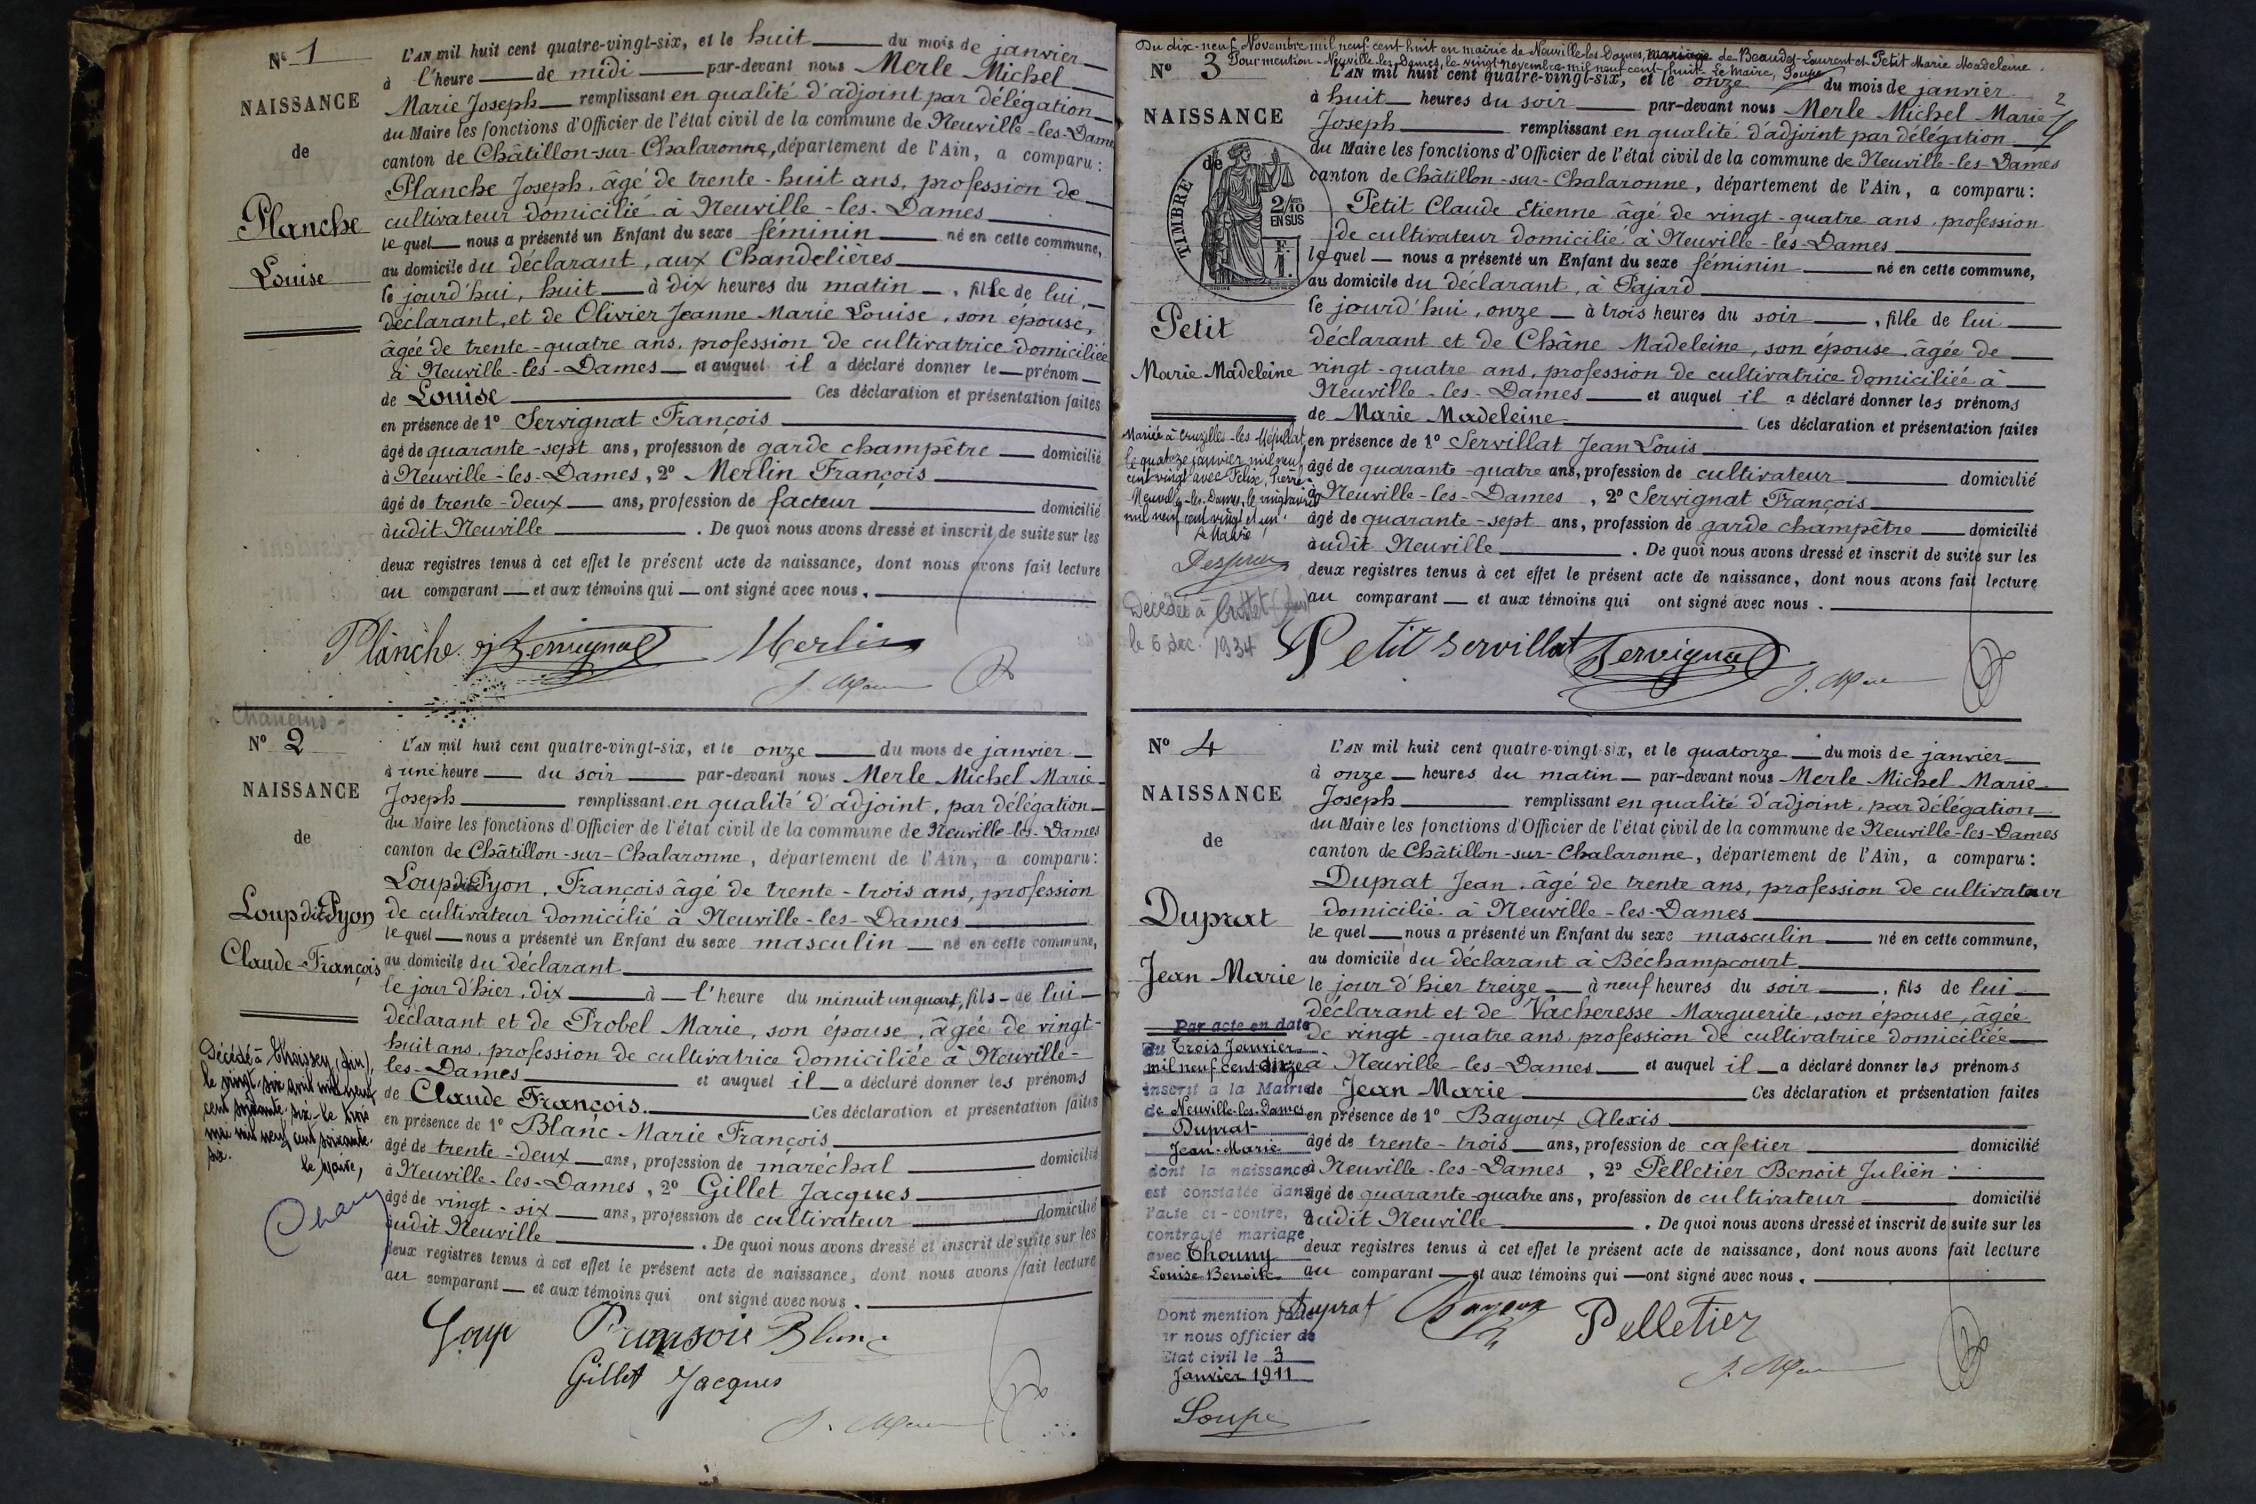 Nº 1
NAISSANCE
de
Planche
Louise
L'AN mil huit cent quatre-vingt-six, et le huit du mois de janvier
à l'heure de midi par-devant nous Merle Michel
Marie Joseph remplissant en qualité d'adjoint par délégation
du Maire les fonctions d'Officier de l'état civil de la commune de Neuville-les-Dames
canton de Châtillon-sur-Chalaronne, département de l'Ain, a comparu :
Planche Joseph, âgé de trente-huit ans, profession de
cultivateur domicilié à Neuville-les-Dames
le quel nous a présenté un Enfant du sexe féminin né en cette commune,
au domicile du déclarant, aux Chandelières
le jourd'hui, huit à dix heures du matin, fille de lui,
déclarant, et de Olivier Jeanne Marie Louise, son épouse,
âgée de trente-quatre ans, profession de cultivatrice domiciliée
à Neuville-les-Dames et auquel il a déclaré donner le prénom
de Louise Ces déclaration et présentation faites
en présence de 1º Servignat François
âgé de quarante-sept ans, profession de garde champêtre domicilié
à Neuville-les-Dames, 2º Merlin François
âgé de trente-deux ans, profession de facteur domicilié
audit Neuville. De quoi nous avons dressé et inscrit de suite sur les
deux registres tenus à cet effet le présent acte de naissance, dont nous avons fait lecture
au comparant et aux témoins qui ont signé avec nous.
Planche Servignat Merlin
à Chaneins
Nº 2
NAISSANCE
de
Loup dit Pyon
Claude-François
Décédé à Thoissey (Ain),
le vingt-six avril mil neuf
cent soixante-six. Le trois
mai mil neuf cent soixante-
six.
Le Maire,
L'AN mil huit cent quatre-vingt-six, et le onze du mois de janvier
à une heure du soir par-devant nous Merle Michel Marie
Joseph remplissant en qualité d'adjoint, par délégation
du Maire les fonctions d'Officier de l'état civil de la commune de Neuville-les-Dames
canton de Châtillon-sur-Chalaronne, département de l'Ain, a comparu :
Loup dit Pyon, François âgé de trente-trois ans, profession
de cultivateur domicilié à Neuville-les-Dames
le quel nous a présenté un Enfant du sexe masculin né en cette commune,
au domicile du déclarant
le jour d'hier, dix à l'heure du minuit un quart, fils de lui
déclarant et de Probel Marie, son épouse, âgée de vingt-
huit ans, profession de cultivatrice domiciliée à Neuville-
les-Dames et auquel il a déclaré donner les prénoms
de Claude François. Ces déclaration et présentation faites
en présence de 1º Blanc Marie François
âgé de trente-deux ans, profession de maréchal domicilié
à Neuville-les-Dames, 2º Gillet Jacques
âgé de vingt-six ans, profession de cultivateur domicilié
audit Neuville. De quoi nous avons dressé et inscrit de suite sur les
deux registres tenus à cet effet le présent acte de naissance, dont nous avons fait lecture
au comparant et aux témoins qui ont signé avec nous.
Loup Blanc
Gillet Jacques
Du dix-neuf Novembre mil neuf cent huit en mairie de Neuville-les-Dames, mariage de Beaudet Laurent et Petit Marie Madeleine.
Pour mention - Neuville-les-Dames, le vingt novembre mil neuf cent huit - Le Maire, Soupe
2
Nº 3
NAISSANCE
de
TIMBRE
2/10
EN SUS
Petit
Marie-Madeleine
Mariée à Cruzilles-les-Mépillat
le quatorze janvier mil neuf
cent vingt avec Félix, Pierre.
Neuville-les-Dames, le
mil neuf cent vingt et un.
Le Maire
Décédée à Crottet (Ain)
le 6 Dec. 1934
L'AN mil huit cent quatre-vingt-six, et le onze du mois de janvier
à huit heures du soir par-devant nous Merle Michel Marie
Joseph remplissant en qualité d'adjoint par délégation
du Maire les fonctions d'Officier de l'état civil de la commune de Neuville-les-Dames
canton de Châtillon-sur-Chalaronne, département de l'Ain, a comparu :
Petit Claude Etienne âgé de vingt-quatre ans, profession
de cultivateur domicilié à Neuville-les-Dames
le quel nous a présenté un Enfant du sexe féminin né en cette commune,
au domicile du déclarant, à Pajard
le jourd'hui, onze à trois heures du soir, fille de lui
déclarant et de Châne Madeleine, son épouse âgée de
vingt-quatre ans, profession de cultivatrice domiciliée à
Neuville-les-Dames et auquel il a déclaré donner les prénoms
de Marie Madeleine Ces déclaration et présentation faites
en présence de 1º Servillat Jean Louis
âgé de quarante-quatre ans, profession de cultivateur domicilié
à Neuville-les-Dames, 2º Servignat François
âgé de quarante-sept ans, profession de garde champêtre domicilié
audit Neuville. De quoi nous avons dressé et inscrit de suite sur les
deux registres tenus à cet effet le présent acte de naissance, dont nous avons fait lecture
au comparant et aux témoins qui ont signé avec nous.
Petit Servillat Servignat
Nº 4
NAISSANCE
de
Duprat
Jean-Marie
Par acte en date
du Trois Janvier
mil neuf cent onze
inscrit à la Mairie
de Neuville-les-Dames
Duprat
Jean-Marie
dont la naissance
est constatée dans
l'acte ci-contre, a
contracté mariage
avec Thouny
Louise Benoite
Dont mention faite
par nous officier de
Etat civil le 3
Janvier 1911
Soupe
L'AN mil huit cent quatre-vingt-six, et le quatorze du mois de janvier
à onze heures du matin par-devant nous Merle Michel Marie
Joseph remplissant en qualité d'adjoint, par délégation
du Maire les fonctions d'Officier de l'état civil de la commune de Neuville-les-Dames
canton de Châtillon-sur-Chalaronne, département de l'Ain, a comparu :
Duprat Jean, âgé de trente ans, profession de cultivateur
domicilié à Neuville-les-Dames
le quel nous a présenté un Enfant du sexe masculin né en cette commune,
au domicile du déclarant à Béchampcourt
le jour d'hier treize à neuf heures du soir, fils de lui
déclarant et de Vacheresse Marguerite, son épouse, âgée
de vingt-quatre ans, profession de cultivatrice domiciliée
à Neuville-les-Dames et auquel il a déclaré donner les prénoms
de Jean Marie Ces déclaration et présentation faites
en présence de 1º Bayoux Alexis
âgé de trente-trois ans, profession de cafetier domicilié
à Neuville-les-Dames, 2º Pelletier Benoit Julien
âgé de quarante-quatre ans, profession de cultivateur domicilié
audit Neuville. De quoi nous avons dressé et inscrit de suite sur les
deux registres tenus à cet effet le présent acte de naissance, dont nous avons fait lecture
au comparant et aux témoins qui ont signé avec nous.
Duprat Bayoux Pelletier